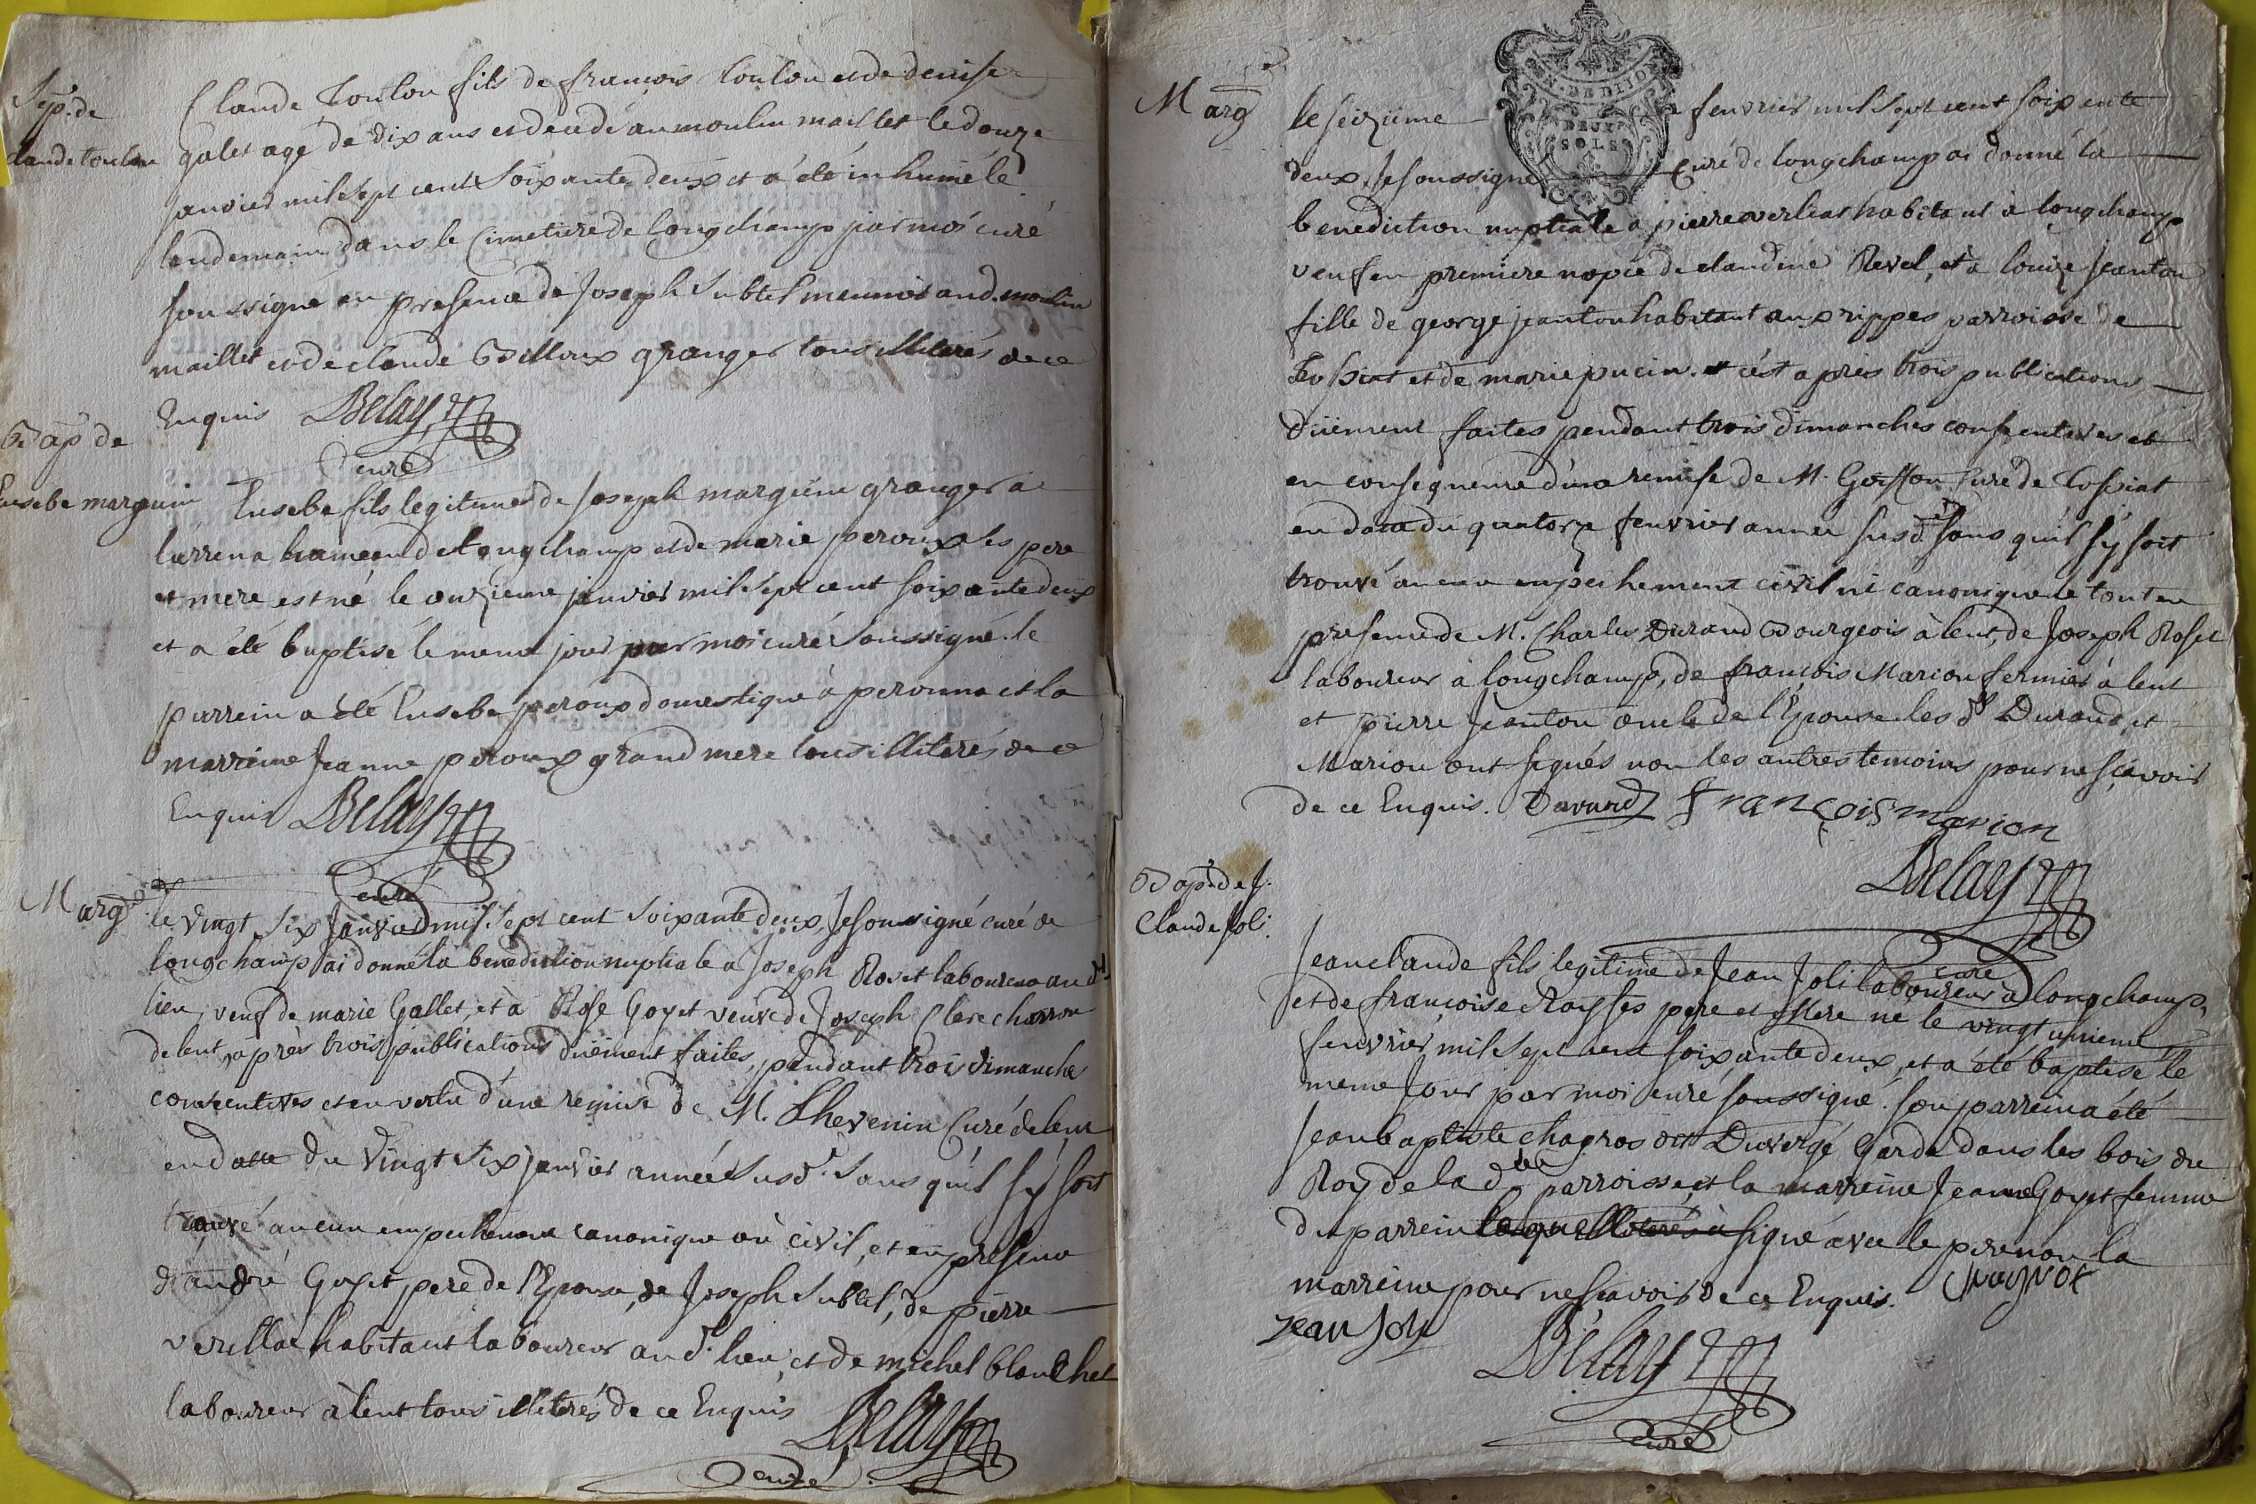 Sep. de
Claude Toulon
Claude Toulon fils de francois Toulon et de denise
galet agé de dix ans est decedé au moulin maillet le douze
janvier mil sept cent soixante deux et a été inhumé le
lendemain dans le Cimetiere de longchamp par moi curé
soussigné en presence de Joseph Subtil meunier aud. moulin
maillet et de claude Billoux granger tous illiterés de ce
Enquis Belay
curé
Bap de
Eusebe marguin
Eusebe fils legitime de Joseph marguin granger a
hameau de Longchamp et de marie peroux ses pere
et mere est né le onzieme janvier mil sept cent soixante deux
et a été baptisé le meme jour par moi curé soussigné. le
parrein a été Eusebe peroux domestique à peronna et la
marreine Jeanne peroux grand mere tous illiterés de ce
Enquis Belay
curé
Marge
le vingt six Janvier mil sept cent soixante deux, Je soussigné curé de
longchamp ai donné la benediction nuptiale a Joseph Roset laboureur au d.
lieu, veuf de marie Gallet, et à Rose Goyet veuve de Joseph Clerc charron
de lent, après trois publications düement faites, pendant trois dimanche
consecutives et en vertu d'une remise de M. Thevenin Curé de lent
en datte du vingt six janvier année susd. sans qu'il s'y soit
trouvé aucun empechement canonique où civil, et en presence
d'andré Goyet pere de l'Epouse, de Joseph Subtil, de pierre
verillat habitant laboureur au d. lieu, et de michel blanchet
laboureur à lent tous illiterés de ce Enquis Belay
curé
GEN. DE DIJON
DEUX
SOLS
Marge
le seizieme fevrier mil sept cent soixente
deux, Je soussigné Curé de longchamp ai donné la
benediction nuptiale a pierre verliat habitant à longchamp
veuf en premiere nopce de claudine Revel, et à louize Jeanton
fille de george jeanton habitant aux rippes parroisse de
Tossiat et de marie pucin. et c'est après trois publications
düement faites pendant trois dimanches consecutives et
en consequence d'une remise de M. Curé de Tossiat
en datte du quatorze fevrier année susd. sans qu'il s'y soit
trouvé aucun empechement civil ni canonique le tout en
presence de M. Charles Durand Bourgeois à lent, de Joseph Roset
laboureur à longchamp, de francois Marion fermier à lent
et pierre Jeanton oncle de l'Epouse les d. Durand, et
Marion ont signés non les autres temoins pour ne sçavoir
de ce Enquis. Durand françois marion
Belay
curé
Bap. de J.
Claude Joli.
Jean claude fils legitime de Jean Joli laboureur à longchamp,
et de françoise Ray ses pere et Mere né le vingt unieme
fevrier mil sept cent soixante deux, et a été baptisé le
meme Jour par moi curé soussigné. son parrein a été
Jean baptiste chagros dit Duvergé Garde dans les bois du
Roy de la d. parroisse et la marreine Jeanne Goyet femme
du parrein signé avec le pere non la
marreine pour ne sçavoir de ce Enquis.
jean Joly
Belay
curé